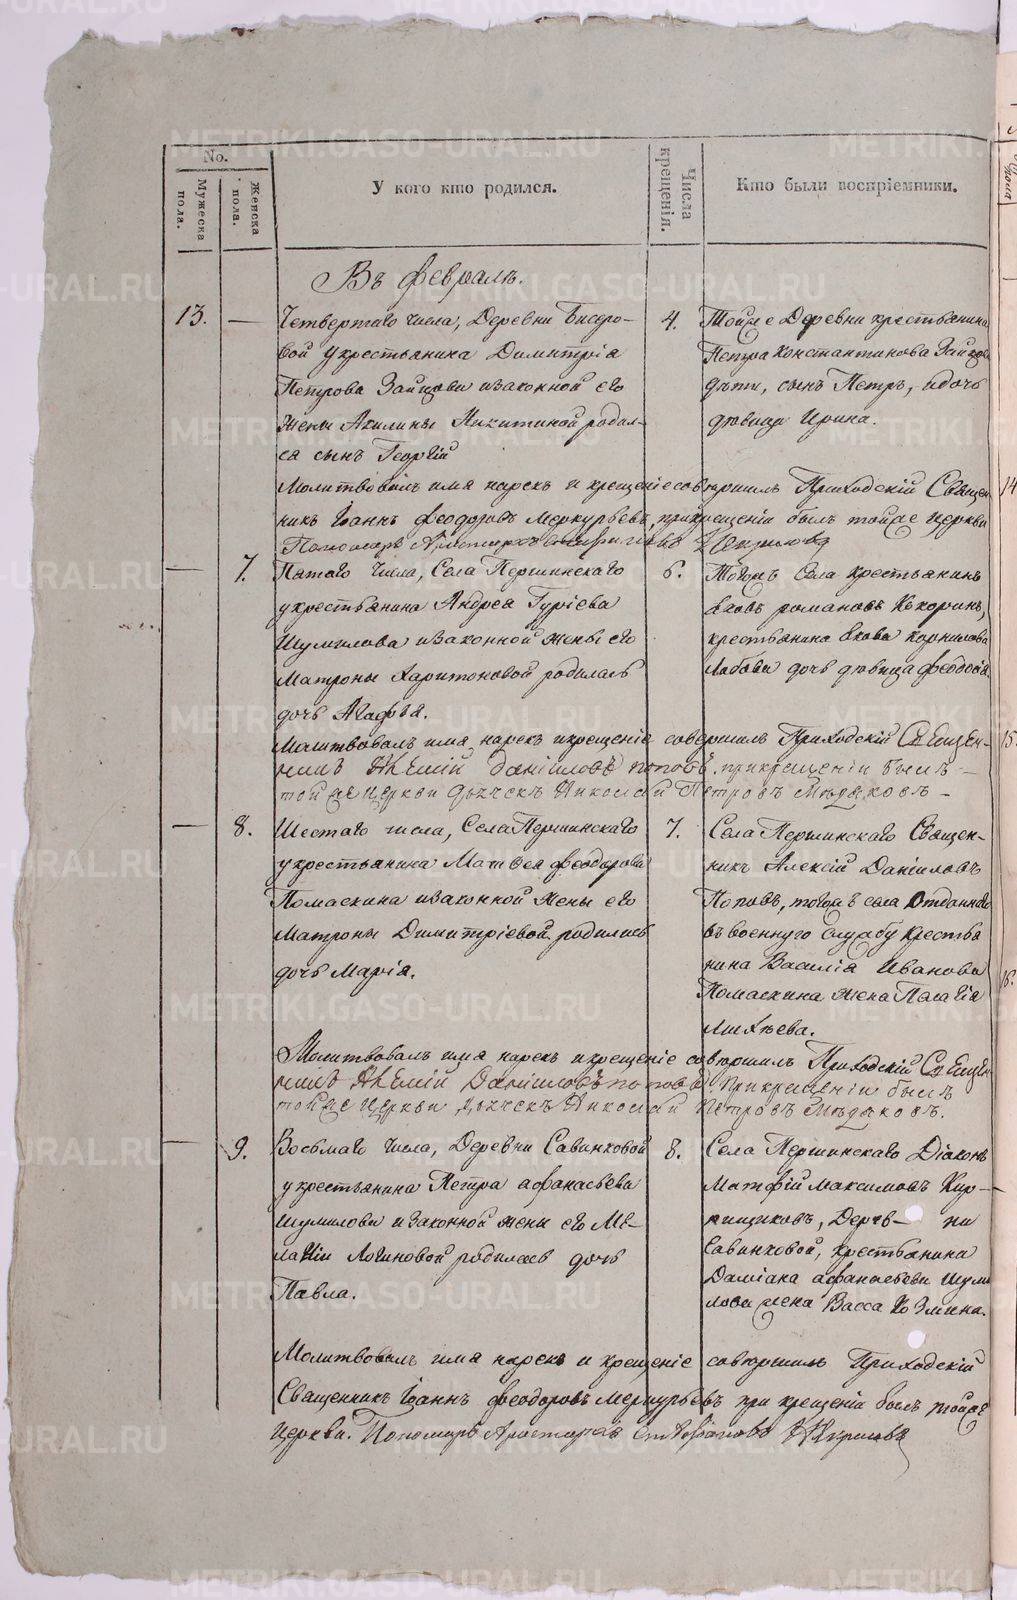 No.
Мужеска пола.
Женска пола.
У кого кто родился.
Числа крещенія.
Кто были воспріемники.
Въ февралѣ.
13. — Четвертаго числа, Деревни Бисеро-
вой у крестьянина Димитрія
Петрова Зайцова и законной его
жены Акилины Никитиной родил-
са сынъ Георгій
4. Тойже Деревни крестьянина
Петра Константинова Зайцова
дѣти, сынъ Петръ, и дочь
дѣвица Ирина.
Молитвовалъ имя нарекъ и крещеніе совершилъ Приходскій Священ-
никъ Іоаннъ Феодоровъ Меркурьевъ, при крещеніи былъ тойже церкви
Пономарь Аристархъ Стефановъ Кирилова
— 7. Патаго числа, Села Першинскаго
у крестьянина Андреа Гуріева
Шумилова и законной жены его
Матроны Харитоновой родилась
дочь Агафья.
6. Тогожъ Села крестьянинъ
Яковъ Романовъ Кокоринъ,
крестьянина Якова Корнилова
Любова дочь дѣвица Феодосія.
Молитвовалъ имя нарекъ и крещеніе совершилъ Приходскій Священ-
никъ Алексій Даніиловъ Поповъ, при крещеніи былъ —
тойже церкви дьячекъ Николай Петровъ Мѣдяковъ —
— 8. Шестаго числа, Села Першинскаго
у крестьянина Матѳеа Феодорова
Помаскина и законной жены его
Матроны Димитріевой родилась
дочь Марія.
7. Села Першинскаго Священ-
никъ Алексій Даніиловъ
Поповъ, тогожъ села Отданнаго
въ военную службу крестья
нина Василія Иванова
Помаскина жена Палагія
Михѣева.
Молитвовалъ имя нарекъ и крещеніе совершилъ Приходскій Священ
никъ Алексій Даніиловъ Поповъ При крещеніи былъ
тойже Церкви дьячекъ Николай Петровъ Мѣдяковъ.
— 9. Восьмаго числа, Деревни Савинковой
у крестьянина Петра Афанасьева
Шумилова и законной жены его Ме-
лагіи Логиновой родилась дочь
Павла.
8. Села Першинскаго Діаконъ
Матфій Максимовъ Кир-
пищиковъ, Дерев— ни
Савинковой, крестьянина
Даміана Афанасьева Шуми
лова жена Васса Козмина.
Молитвовалъ имя нарекъ и крещеніе совершилъ Приходскій
Священникъ Іоаннъ Феодоровъ Меркурьевъ при крещеніи былъ тойже
церкви. Пономарь Аристархъ Стефановъ Кириловъ
14
15.
16.
METRIKI.GASO-URAL.RU